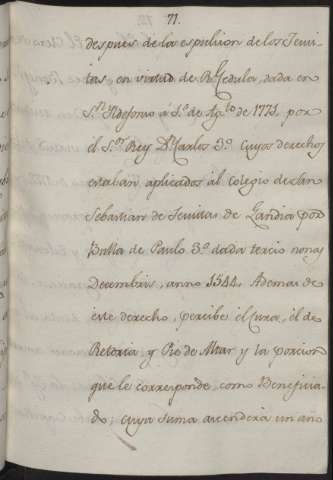 71.
despues de la espulsion de los Jesui-
tas, en virtud de Rl. Cedula, dada en
Sn. Ildefonso á 1.º de Agto. de 1771, por
el Sor. Rey Dn. Carlos 3.º cuyos derechos
estaban aplicados al Colegio de San
Sebastian de Jesuitas de Gandia por
Bulla de Paulo 3.º dada tercio nonas
Decembris, anno 1544. Ademas de
este derecho, percibe el Cura, él de
Retoria y Pie de Altar y la porcion
que le corresponde, como Beneficia-
do; cuya suma ascenderá un año